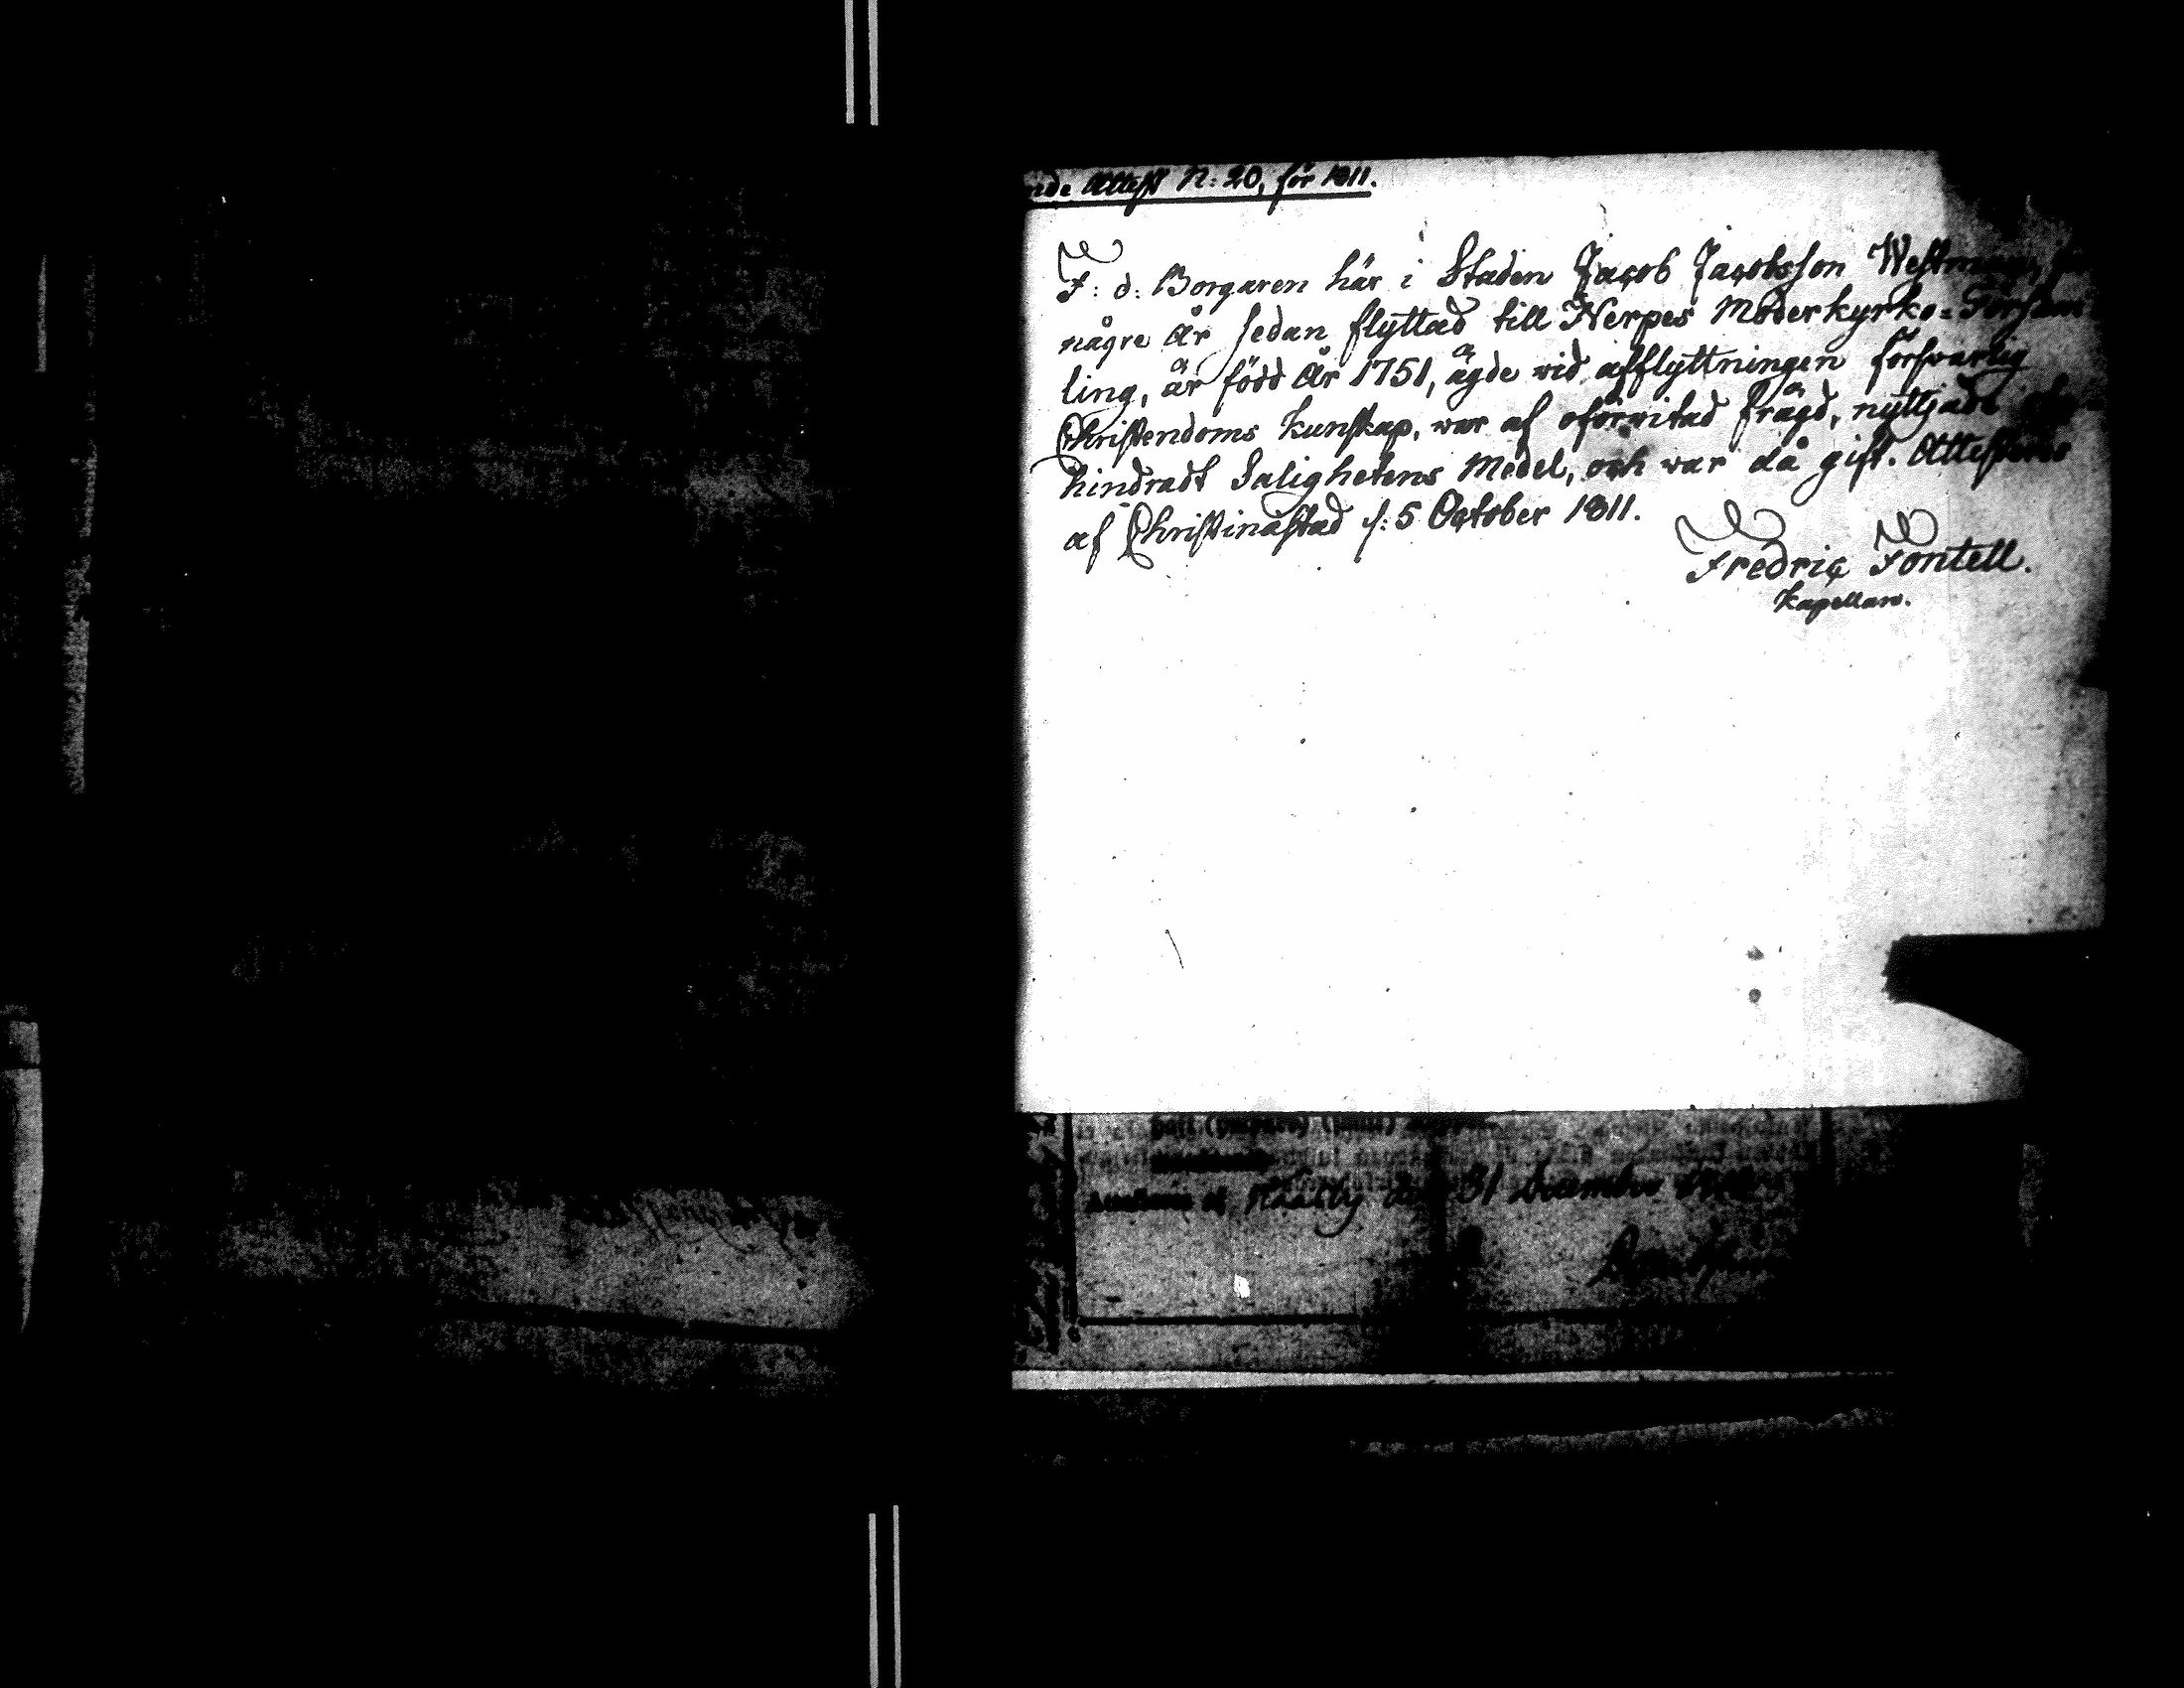 nde Attest N: 20, för 1811.
F: d: Borgaren här i Staden Jacob Jacobsson Westman, för
någre År sedan flyttad till Nerpes Moderkyrko-Försam
ling, är född År 1751, ägde vid afflyttningen försvarlig
Christendoms kunskap, war af oförvitad frägd, nyttjade
hindradt Salighetens Medel, och war då gift. Attesteras
af Christinæstad d: 5 October 1811.
Fredric Fontell.
Kapellan.
Attesteras af den 31 December